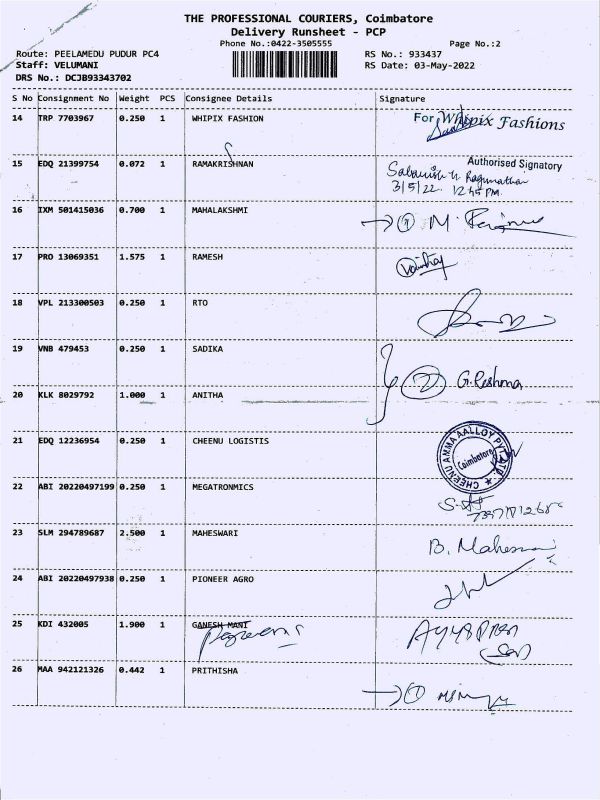 THE PROFESSIONAL COURIERS, Coimbatore
Delivery Runsheet - PCP
Phone No.:0422-3505555 Page No.:2
Route: PEELAMEDU PUDUR PC4 RS No.: 933437
Staff: VELUMANI RS Date: 03-May-2022
DRS No.: DCJB93343702
S No Consignment No Weight PCS Consignee Details Signature
14 TRP 7703967 0.250 1 WHIPIX FASHION For Whipix Fashions
Authorised Signatory
15 EDQ 21399754 0.072 1 RAMAKRISHNAN
3/5/22. 12.45 PM.
16 IXM 501415036 0.700 1 MAHALAKSHMI 1 M.
17 PRO 13069351 1.575 1 RAMESH
18 VPL 213300503 0.250 1 RTO
19 VNB 479453 0.250 1 SADIKA
2 G. Reshma
20 KLK 8029792 1.000 1 ANITHA
21 EDQ 12236954 0.250 1 CHEENU LOGISTIS CHEENU AMMA AALLOY PVT LTD
Coimbatore
22 ABI 20220497199 0.250 1 MEGATRONMICS
23 SLM 294789687 2.500 1 MAHESWARI B. Maheswari
24 ABI 20220497938 0.250 1 PIONEER AGRO
25 KDI 432005 1.900 1 GANESH MANI
26 MAA 942121326 0.442 1 PRITHISHA 1